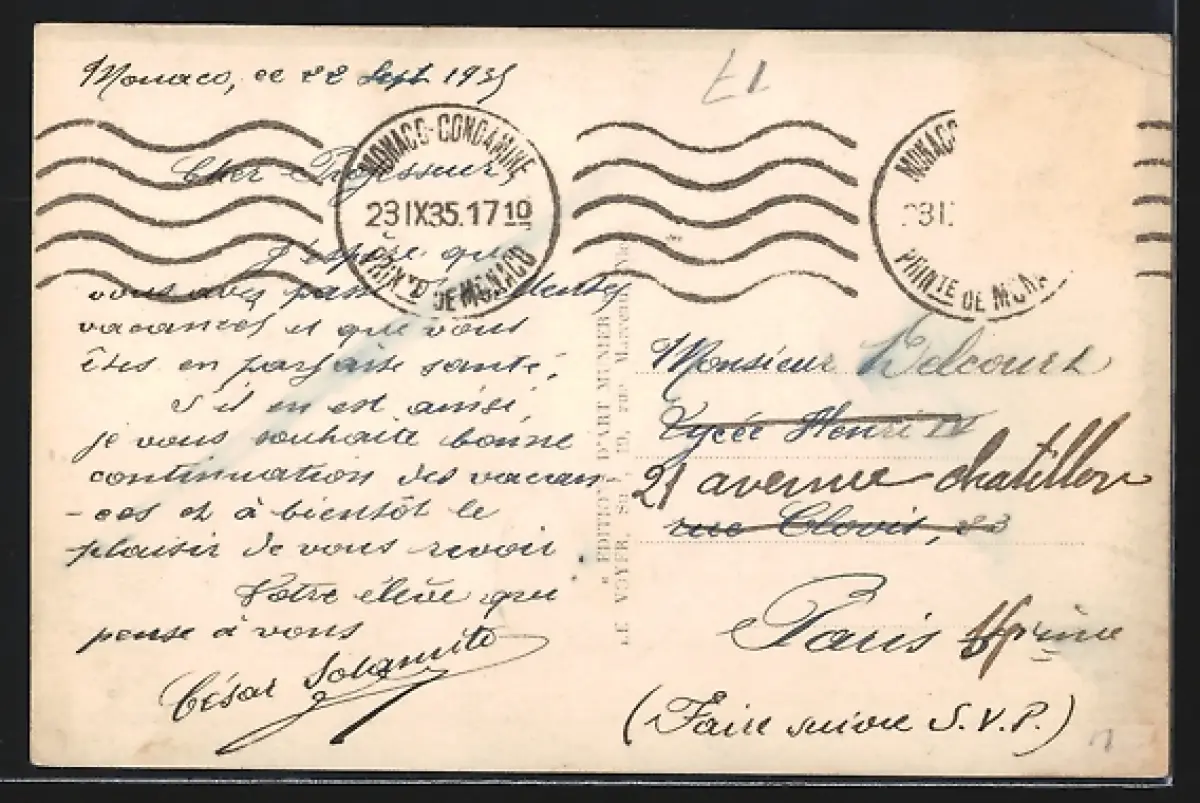 Monaco, ce 22 Sept 1935
Cher Professeur,
J'espère que
vous avez passé
vacances et que vous
êtes en parfaite santé,
s'il en est ainsi,
je vous souhaite bonne
continuation des vacan-
-ces et à bientôt le
plaisir de vous revoir.
Votre élève qui
pense à vous
César Solamito
MONACO-CONDAMINE
23 IX 35. 17 10
PRINTÉ DE MONACO
EDITION D'ART MUNIER
LE VOYER, Sr, 19, rue
17
MONAC
23 I
PRINTÉ DE MONA
Monsieur Delcourt
Lycée Henri IV
21 avenue Chatillon
rue Clovis, 23
Paris
(Faire suivre S.V.P.)